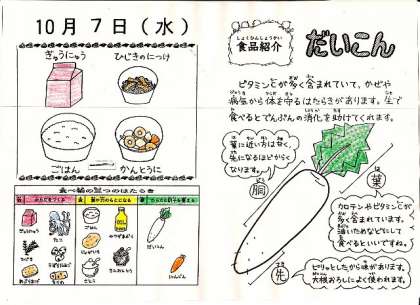 10月7日(水)
ぎゅうにゅう
ひじきのにつけ
ごはん
かんとうに
食べ物の三つのはたらき
ぎゅうにゅう
たこ
ごはん
だいこん
にんじん
しょくひんしょうかい
食品紹介
だいこん
ビタミンCが多く含まれていて、かぜや
病気から体を守るはたらきがあります。生で
食べるとでんぷんの消化を助けてくれます。
葉に近い方は甘く、
先になるほどから
くなります。
胴
葉
カロテンやビタミンCが
多く含まれています。
食べるといいですね。
先
ピリッとしたから味があります。
大根おろしによく使われます。